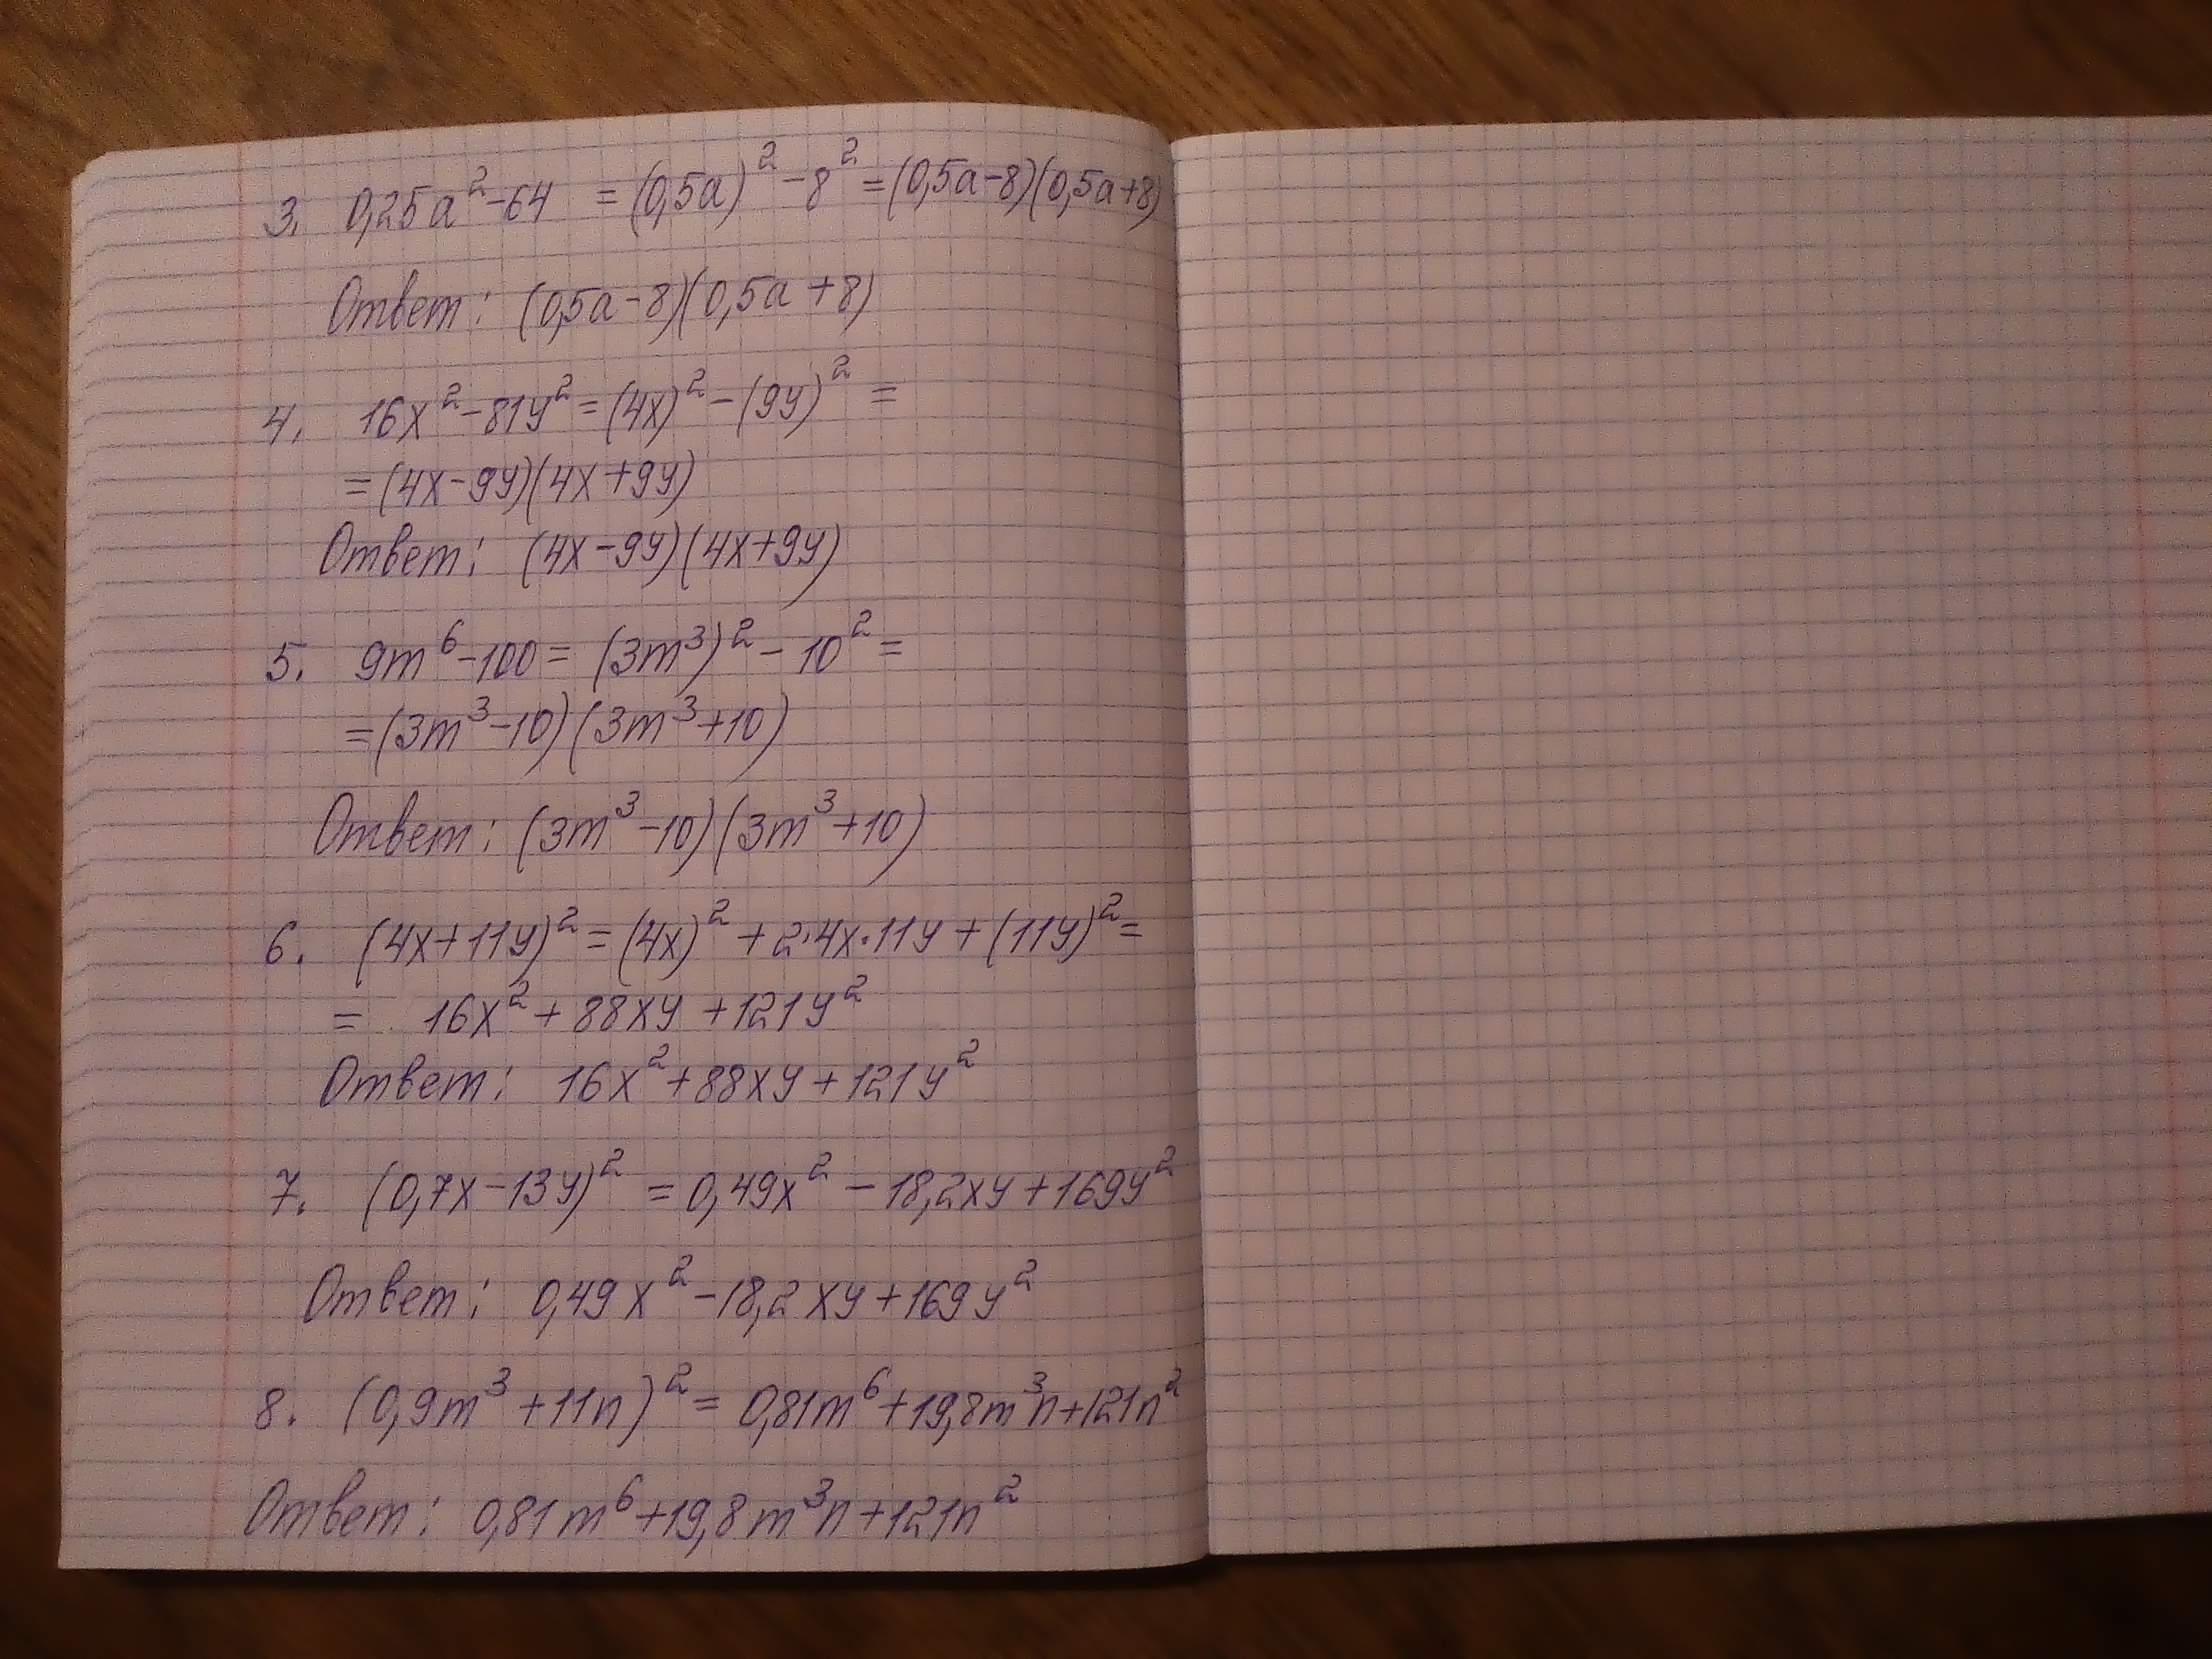 3. 0,25a²-64 = (0,5a)² - 8² = (0,5a-8)(0,5a+8)
Ответ: (0,5a-8)(0,5a+8)
4. 16x²-81y² = (4x)² - (9y)² =
= (4x-9y)(4x+9y)
Ответ: (4x-9y)(4x+9y)
5. 9m⁶-100 = (3m³)² - 10² =
= (3m³-10)(3m³+10)
Ответ: (3m³-10)(3m³+10)
6. (4x+11y)² = (4x)² + 2·4x·11y + (11y)² =
= 16x² + 88xy + 121y²
Ответ: 16x²+88xy+121y²
7. (0,7x-13y)² = 0,49x² - 18,2xy + 169y²
Ответ: 0,49x²-18,2xy+169y²
8. (0,9m³+11n)² = 0,81m⁶+19,8m³n+121n²
Ответ: 0,81m⁶+19,8m³n+121n²